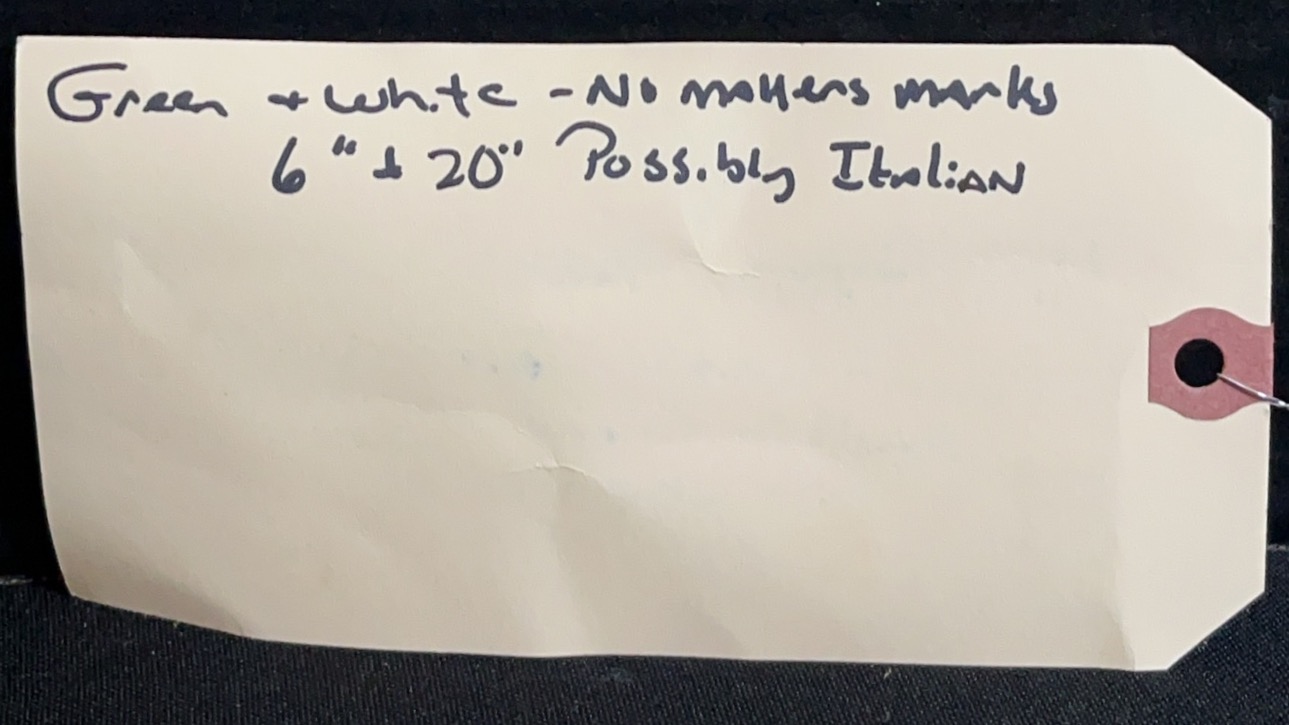 Green + white - No makers marks
6" + 20" Possibly Italian